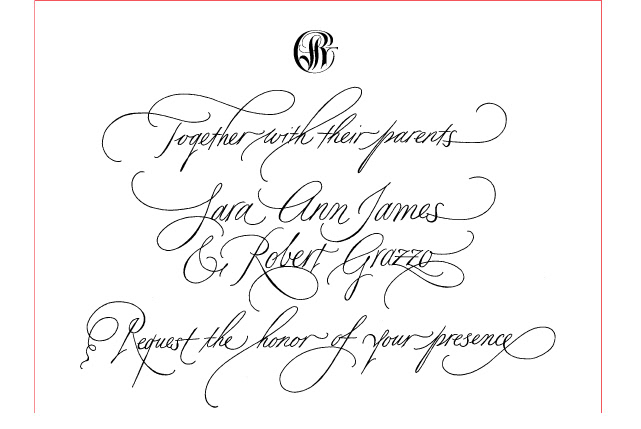 Together with their parents
Sara Ann James
& Robert Grazzo
Request the honor of your presence